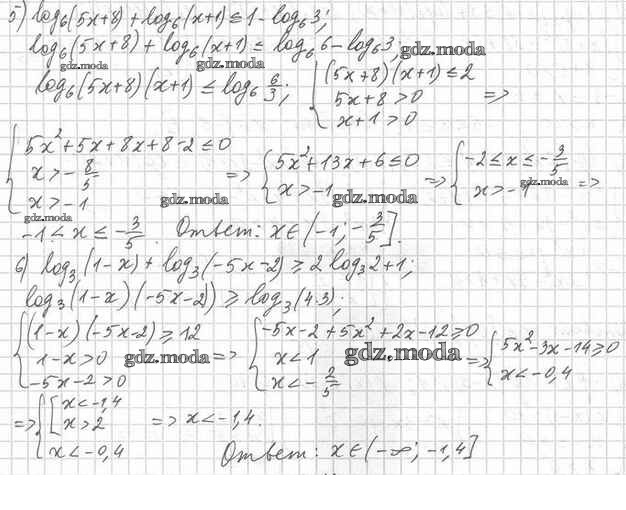 5) log₆(5x+8) + log₆(x+1) ≤ 1 - log₆3;
log₆(5x+8) + log₆(x+1) ≤ log₆6 - log₆3; gdz.moda
gdz.moda gdz.moda
log₆(5x+8)(x+1) ≤ log₆ 6/3; { (5x+8)(x+1) ≤ 2
5x+8 > 0 =>
x+1 > 0
{ 5x²+5x+8x+8-2 ≤ 0
x > -8/5
x > -1
=> { 5x²+13x+6 ≤ 0
x > -1
=> { -2 ≤ x ≤ -3/5
x > -1 =>
gdz.moda gdz.moda gdz.moda
gdz.moda
-1 < x ≤ -3/5. Ответ: x∈(-1; -3/5].
6) log₃(1-x) + log₃(-5x-2) ≥ 2log₃2+1;
log₃(1-x)(-5x-2)) ≥ log₃(4·3);
{ (1-x)(-5x-2) ≥ 12
1-x > 0
-5x-2 > 0
gdz.moda
=> { -5x-2+5x²+2x-12 ≥ 0
x < 1
x < -2/5
gdz.moda
=> { 5x²-3x-14 ≥ 0
x < -0,4
=> { [ x < -1,4
x > 2
x < -0,4
=> x < -1,4.
Ответ: x∈(-∞; -1,4]